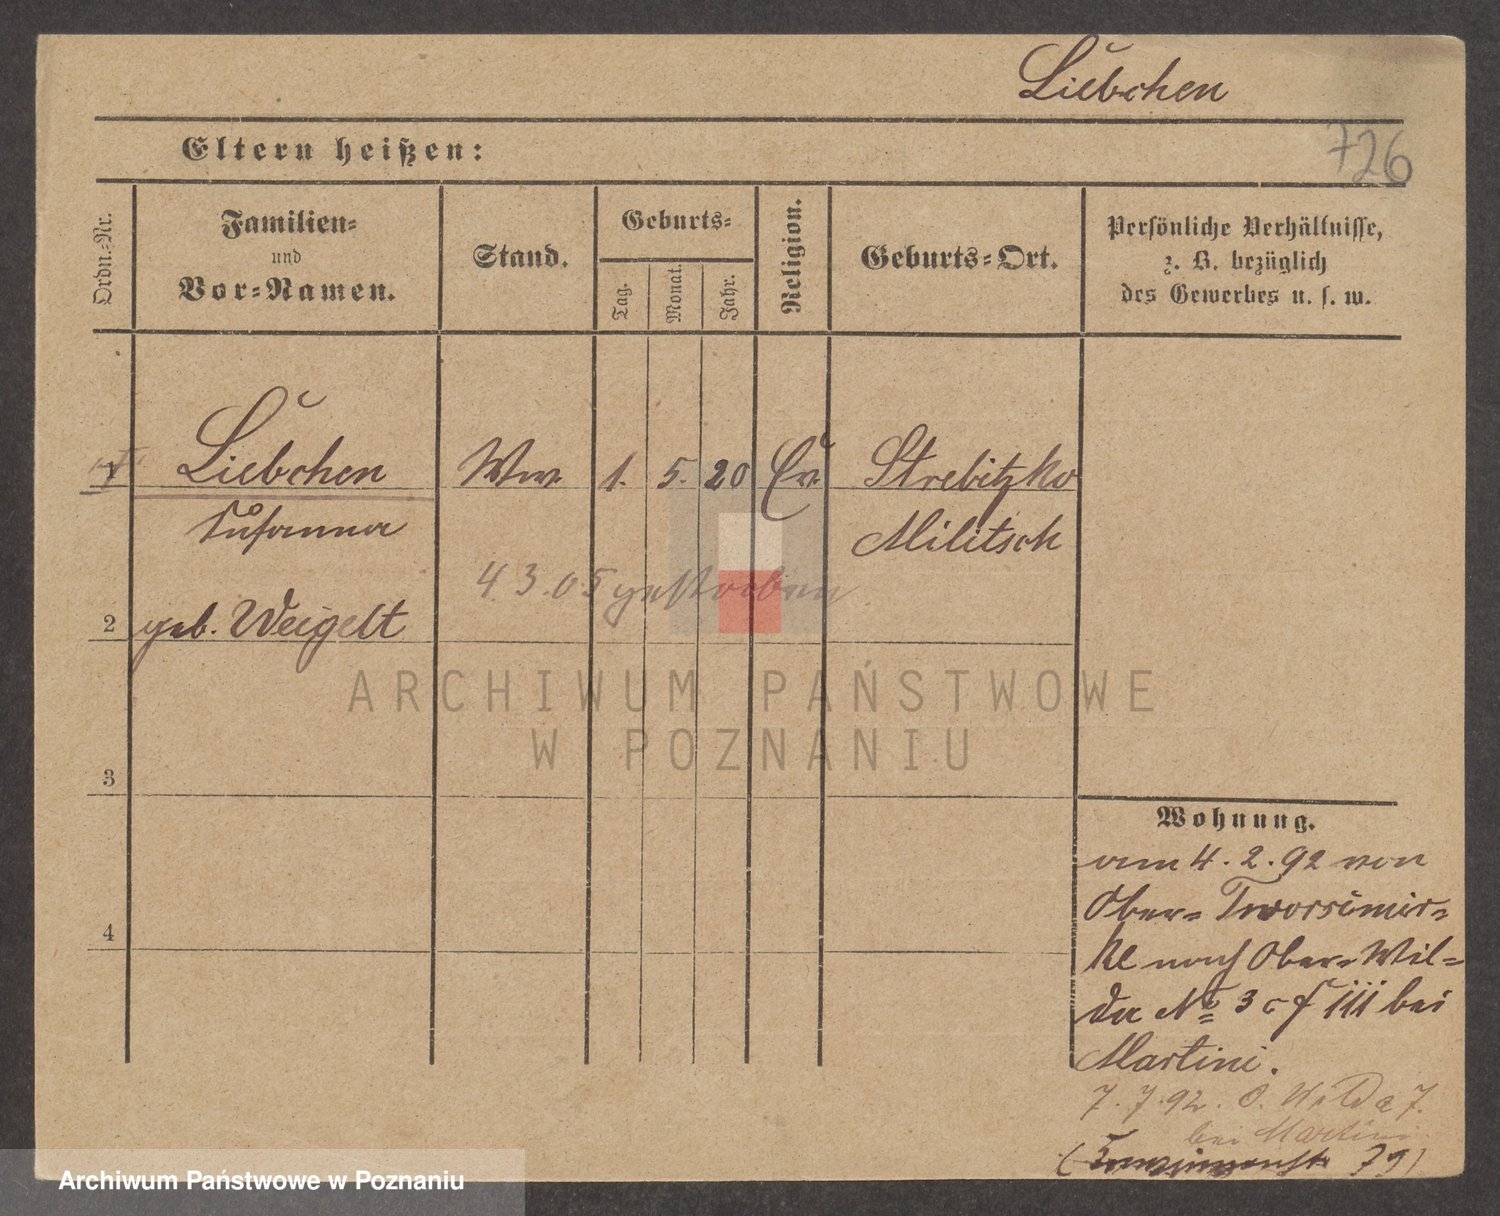 Liebchen
726
Eltern heißen:
Ordn.-Nr.
Familien-
und
Vor-Namen.
Stand.
Geburts-
Tag.
Monat.
Jahr.
Religion.
Geburts-Ort.
Persönliche Verhältnisse,
z. B. bezüglich
des Gewerbes u. s. w.
1 Liebchen Ww. 1. 5. 20 Ev. Strebitzko
Susanna Militsch
4 3. 05 gestorben
2 geb. Weigelt
ARCHIWUM PAŃSTWOWE
W POZNANIU
3
4
Wohnung.
am 4. 2. 92 von
Ober-
nach Ober-Wil-
da No 3 c f III bei
Martini.
7. 7. 92. O. Wilda 7.
bei Martini
79)
Archiwum Państwowe w Poznaniu